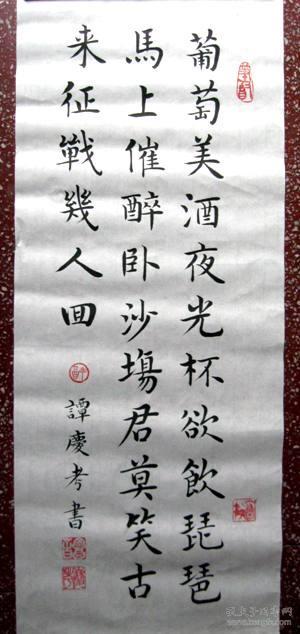 葡萄美酒夜光杯欲飲琵琶
馬上催醉卧沙塲君莫笑古
来征戰幾人回
譚慶考書